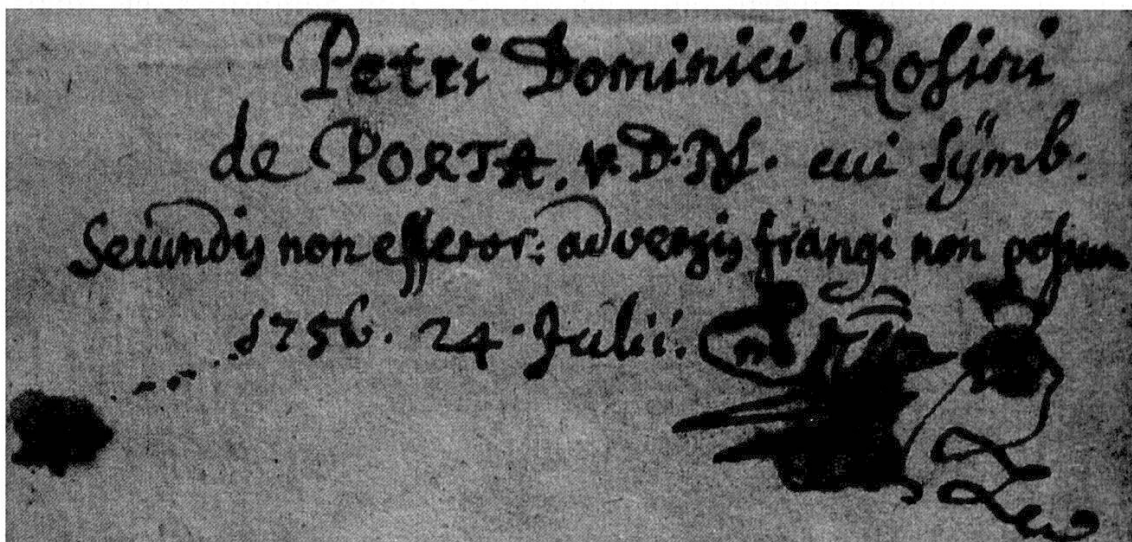 Petri Dominici Rosini
de PORTA. V.D.M. cui Sÿmb:
Secundis non efferor: adversis frangi non possum
1756. 24. Julii.